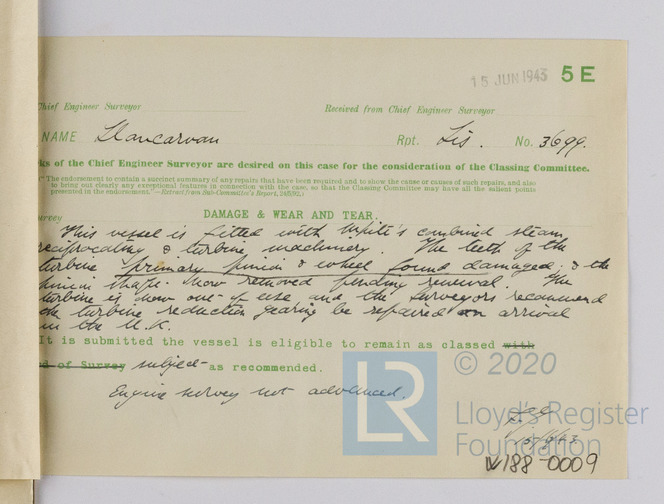 15 JUN 1943 5E
Chief Engineer Surveyor Received from Chief Engineer Surveyor
NAME Llancarvan Rpt. Lis. No. 3699.
ks of the Chief Engineer Surveyor are desired on this case for the consideration of the Classing Committee.
"The endorsement to contain a succinct summary of any repairs that have been required and to show the cause or causes of such repairs, and also
to bring out clearly any exceptional features in connection with the case, so that the Classing Committee may have all the salient points
presented in the endorsement."—Extract from Sub-Committee's Report, 24/5/92.)
urvey DAMAGE & WEAR AND TEAR.
This vessel is fitted with White's combined steam
reciprocating & turbine machinery. The teeth of the
turbine primary pinion & wheel found damaged, & the
pinion shaft now removed pending renewal. The
turbine is now out of use and the Surveyors recommend
the turbine reduction gearing be repaired on arrival
in the U.K.
It is submitted the vessel is eligible to remain as classed with
d of Survey subject as recommended.
Engine survey not advanced.
© 2020
LR
Lloyd's Register
Foundation
W188-0009